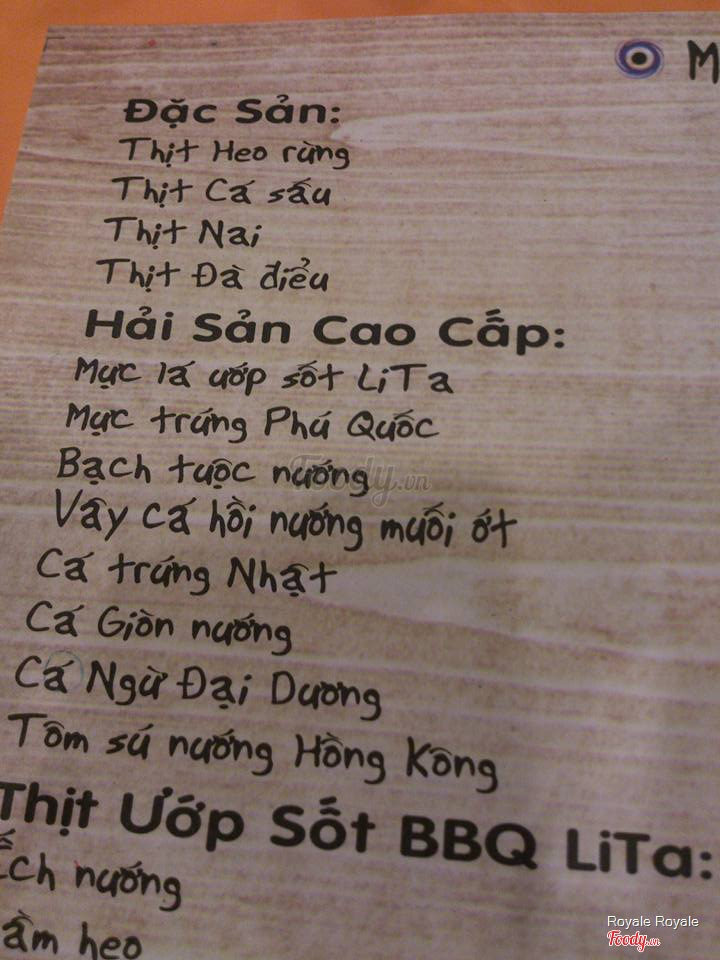 M
Đặc Sản:
Thịt Heo rừng
Thịt Cá sấu
Thịt Nai
Thịt Đà điểu
Hải Sản Cao Cấp:
Mực lá ướp sốt LiTa
Mực trứng Phú Quốc
Bạch tuộc nướng
Vây cá hồi nướng muối ớt
Cá trứng Nhật
Cá Giòn nướng
Cá Ngừ Đại Dương
Tôm sú nướng Hồng Kông
Thịt Ướp Sốt BBQ LiTa:
Ếch nướng
ầm heo
Foody.vn
Royale Royale
Foody.vn